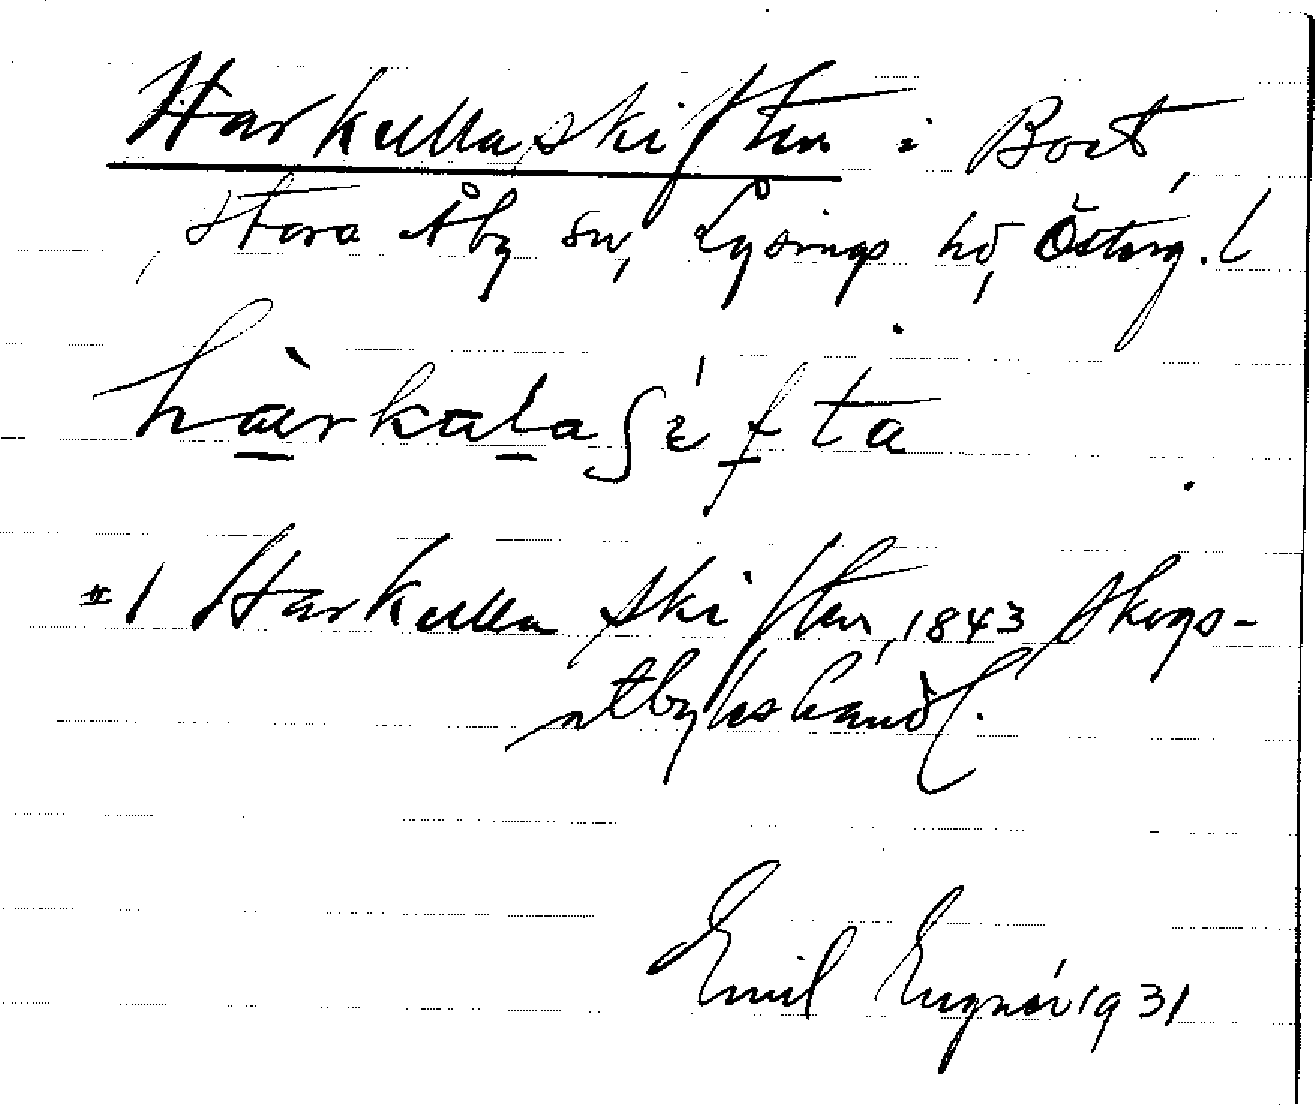 Harkullaskiften i Boet,
Stora Åby sn, Lysings hd, Österg. l
hàrkalaʃɛ́fta
± 1 Harkulla skiften, 1843 Skogs-
utbyteshandl.
Emil Eugnér 1931